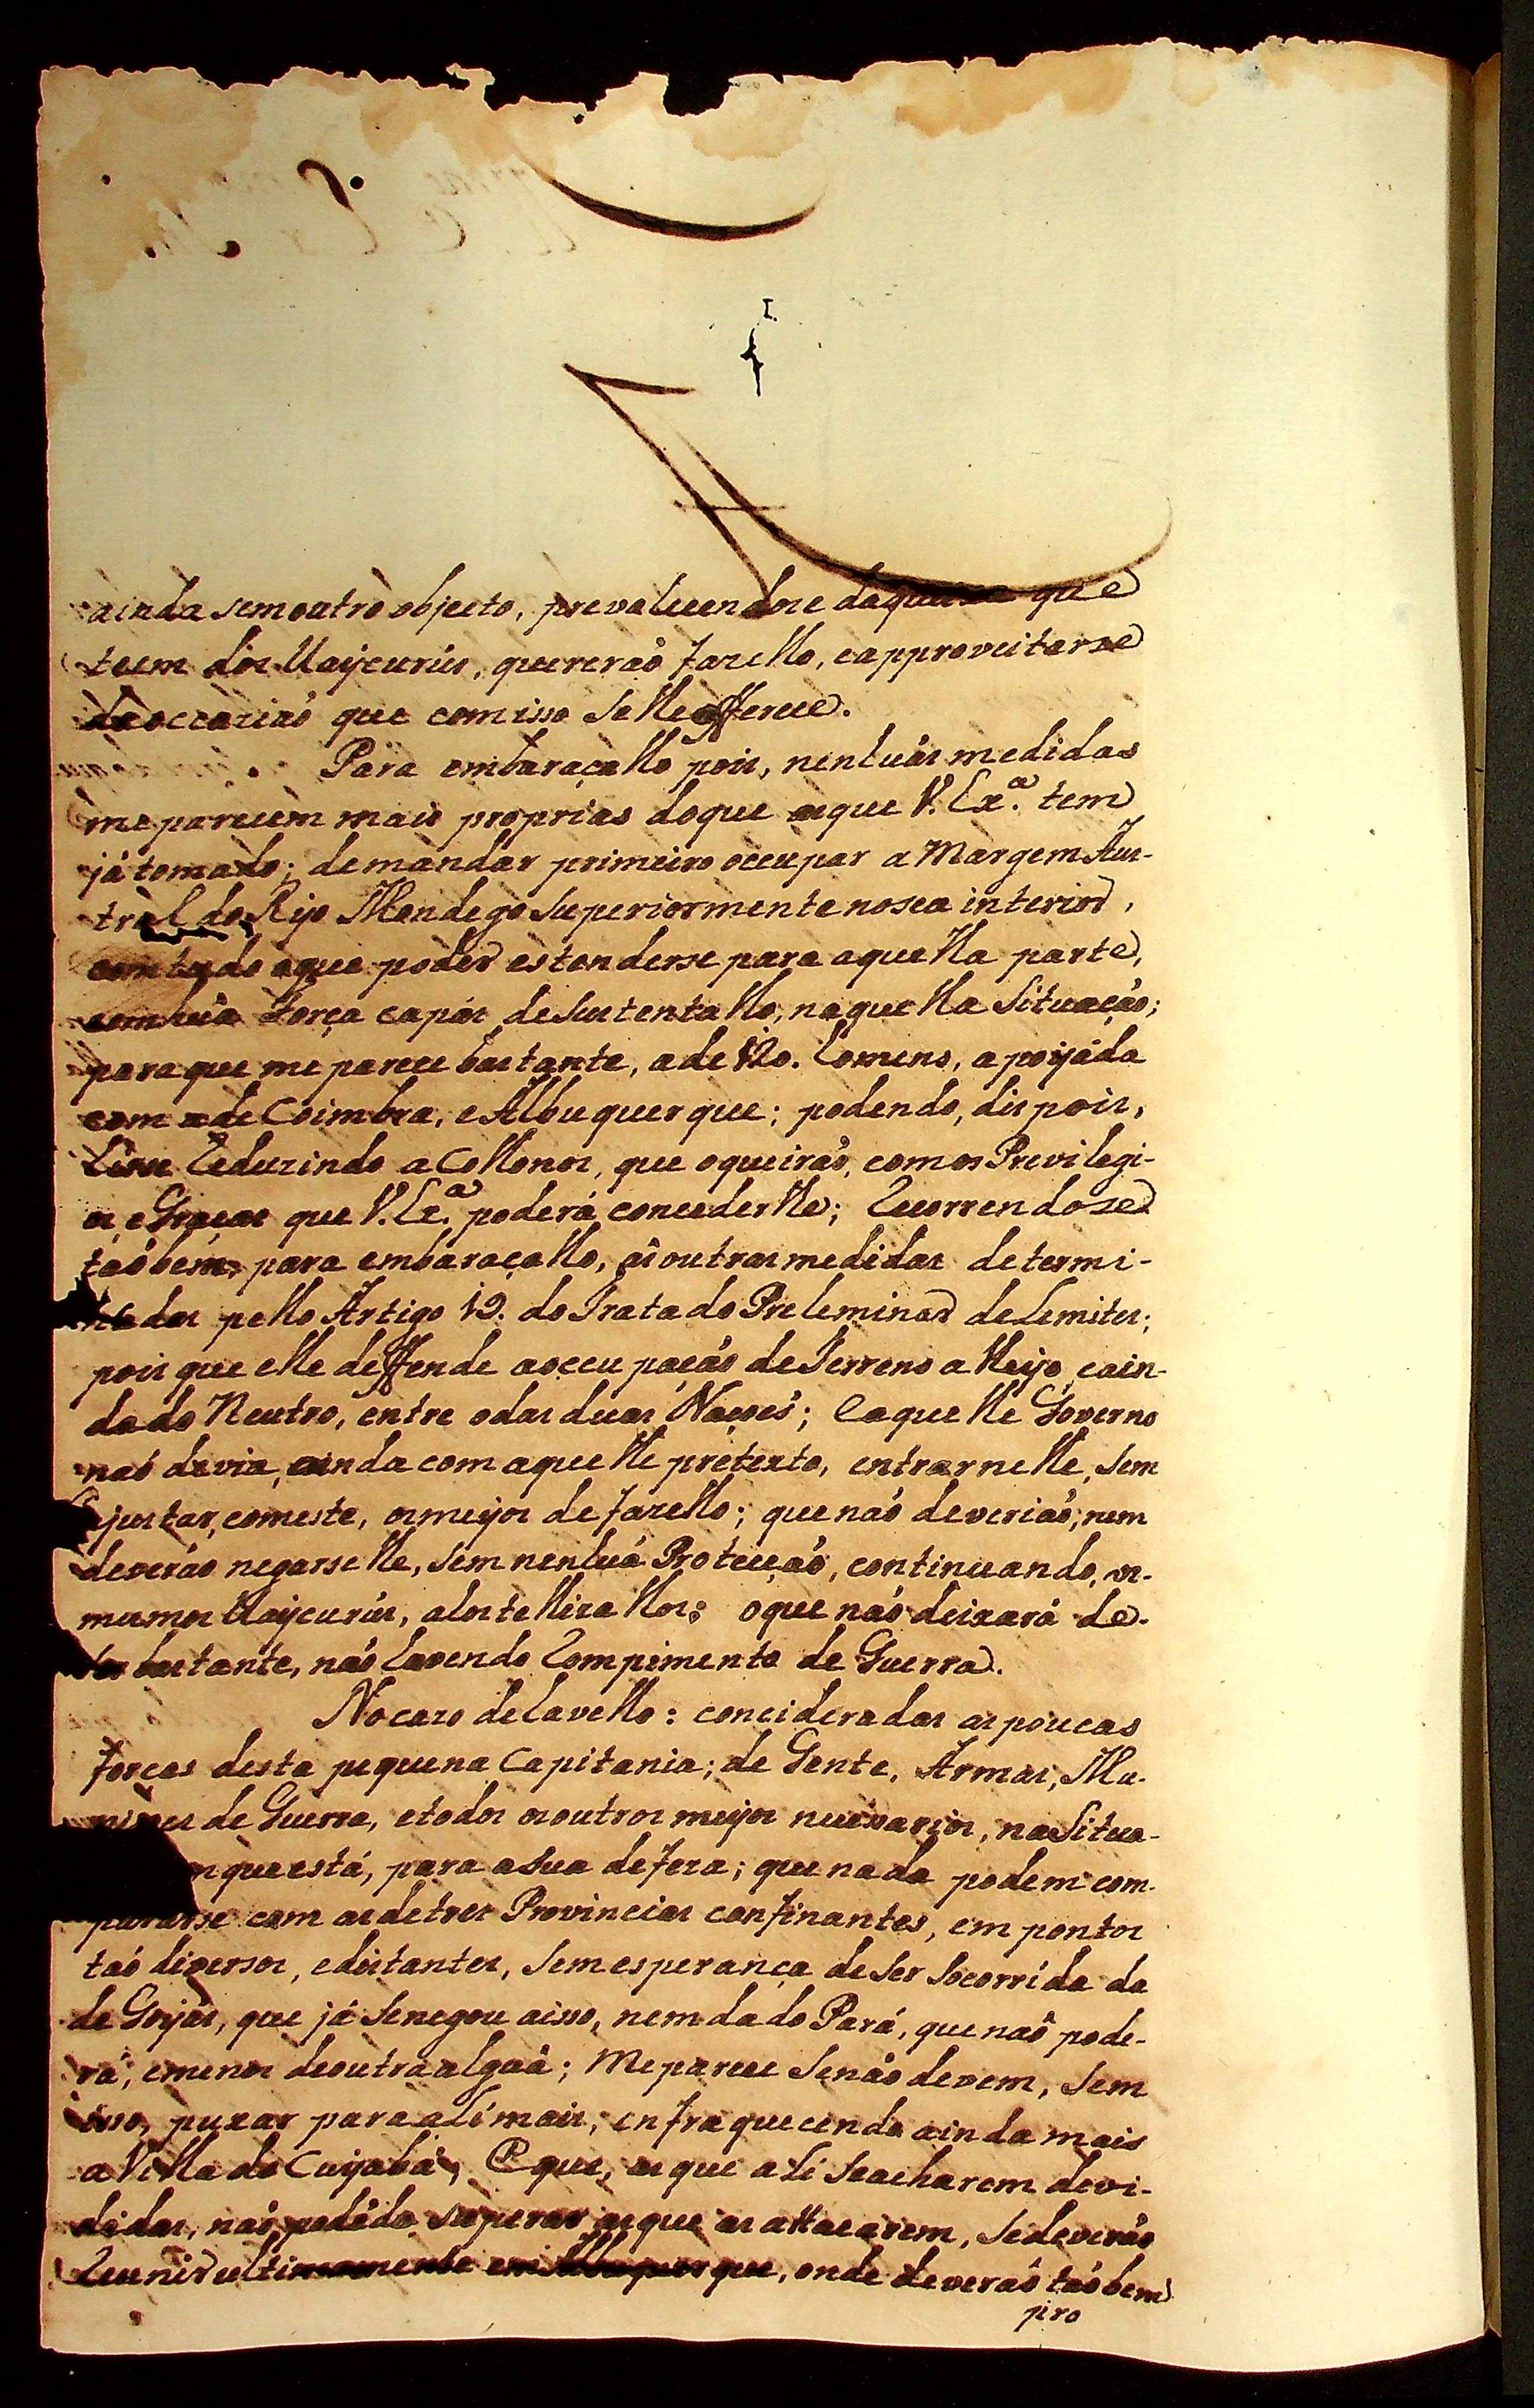 ainda sem outro objecto, prevalecendose daquella que
teem dos Uaÿcurús, quererаõ fazello, e approveitarse
da occaziaõ que com isso se lhe offerece.
Para embaraçallo pois, nenhuãs medidas
me parecem mais proprias do que as que V. Exª. tem
já tomado; de mandar primeiro occupar a Margem Aus-
tral do Rijo Mondego superiormente no sea interior,
com tudo o que poder estenderse para aquella parte,
com huã Força capás de sustentallo, naquella Situaçaõ;
para que me parece bastante, a de 120. homens, apoijada
com a de Coimbra, e Albuquerque; podendo, dispois,
hirse reduzindo a Collonos, que o queiraõ, com os Previlegi-
os, e Graças que V. Exª. poderá concederlhe; recorrendose
taõbem, para embaraçallo, ás outras medidas determi-
nadas pello Artigo 19. do Tratado Preleminar de Lemites;
pois que elle deffende a occupaçaõ de Terreno alheijo, e ain-
da do Neutro, entre o das duas Naçoẽs; e aquelle Governo
naõ devia, ainda com aquelle pretexto, entrar nelle, sem
ajustar, com este, os meijos de fazello; que naõ deveriaõ, nem
deveraõ negarselhe, sem nenhuã Protecçaõ, continuando, os
mesmos Uaÿcurús, a hostellizallos: o que naõ deixará de
ser bastante, naõ havendo rompimento de Guerra.
No cazo de havello: concideradas as poucas
forças desta pequena Capitania; de Gente, Armas, Mu-
niçoes de Guerra, e todos os outros meijos necessarios, na Situa-
em que está, para a sua defeza; que nada podem com-
pararse com as de tres Provincias confinantes, em pontos
taõ diversos, e distantes, sem esperança de ser socorrida da
de Goijás, que já se negou a isso, nem da do Pará, que naõ pode-
rá, e menos de outra alguã; me parece se naõ devem, sem
isso, puxar para ali mais, enfraquecendo ainda mais
a Villa do Cuijabá; E que, as que ali se acharem devi-
didas, naõ podẽdo superar as que as attacarem, se deveraõ
reunir ultimamente em Albuquerque, onde deveraõ taõbem
pro